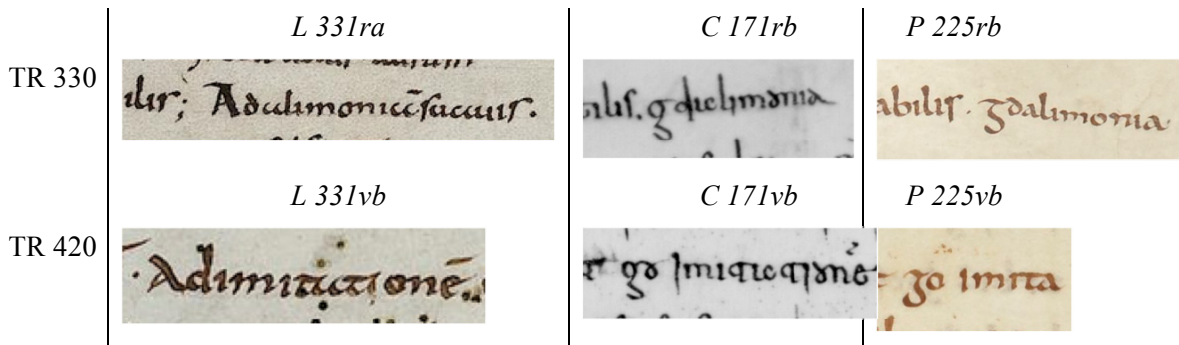 L 331ra C 171rb P 225rb
TR 330 ilis; Adalimoniā suauis. ilis. gdalimonia abilis. ḡdalimonia
L 331vb C 171vb P 225vb
TR 420 · Adimitationē gd imitationē gd imita